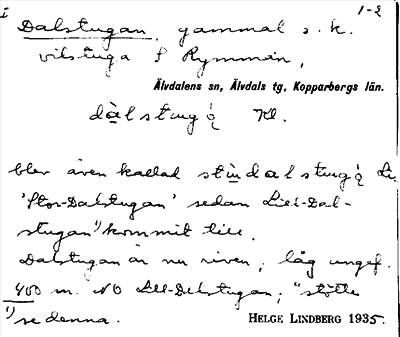 i 1-2
Dalstugan, gammal s. k.
vilstuga i Rymman,
Älvdalens sn, Älvdals tg, Kopparbergs län.
dàlstugọ̀ Kl.
blev även kallad stùndalstugọ̀ Li.
'Stor-Dalstugan' sedan Lill-Dal-
stugan¹⁾ kommit till.
Dalstugan är nu riven; låg ungef.
400 m. NO Lill-Dalstugan; "större
¹⁾ se denna.
HELGE LINDBERG 1935.